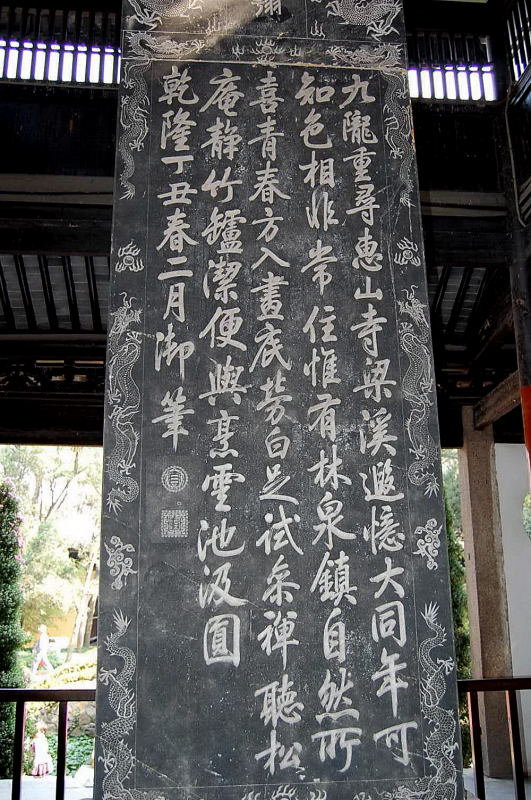 九隴重尋惠山寺梁溪遐憶大同年可
知色相非常住惟有林泉鎮自然所
喜青春方入畫底勞白足試參禪聽松
庵靜竹罏潔便與烹雲池汲圓
乾隆丁丑春二月御筆